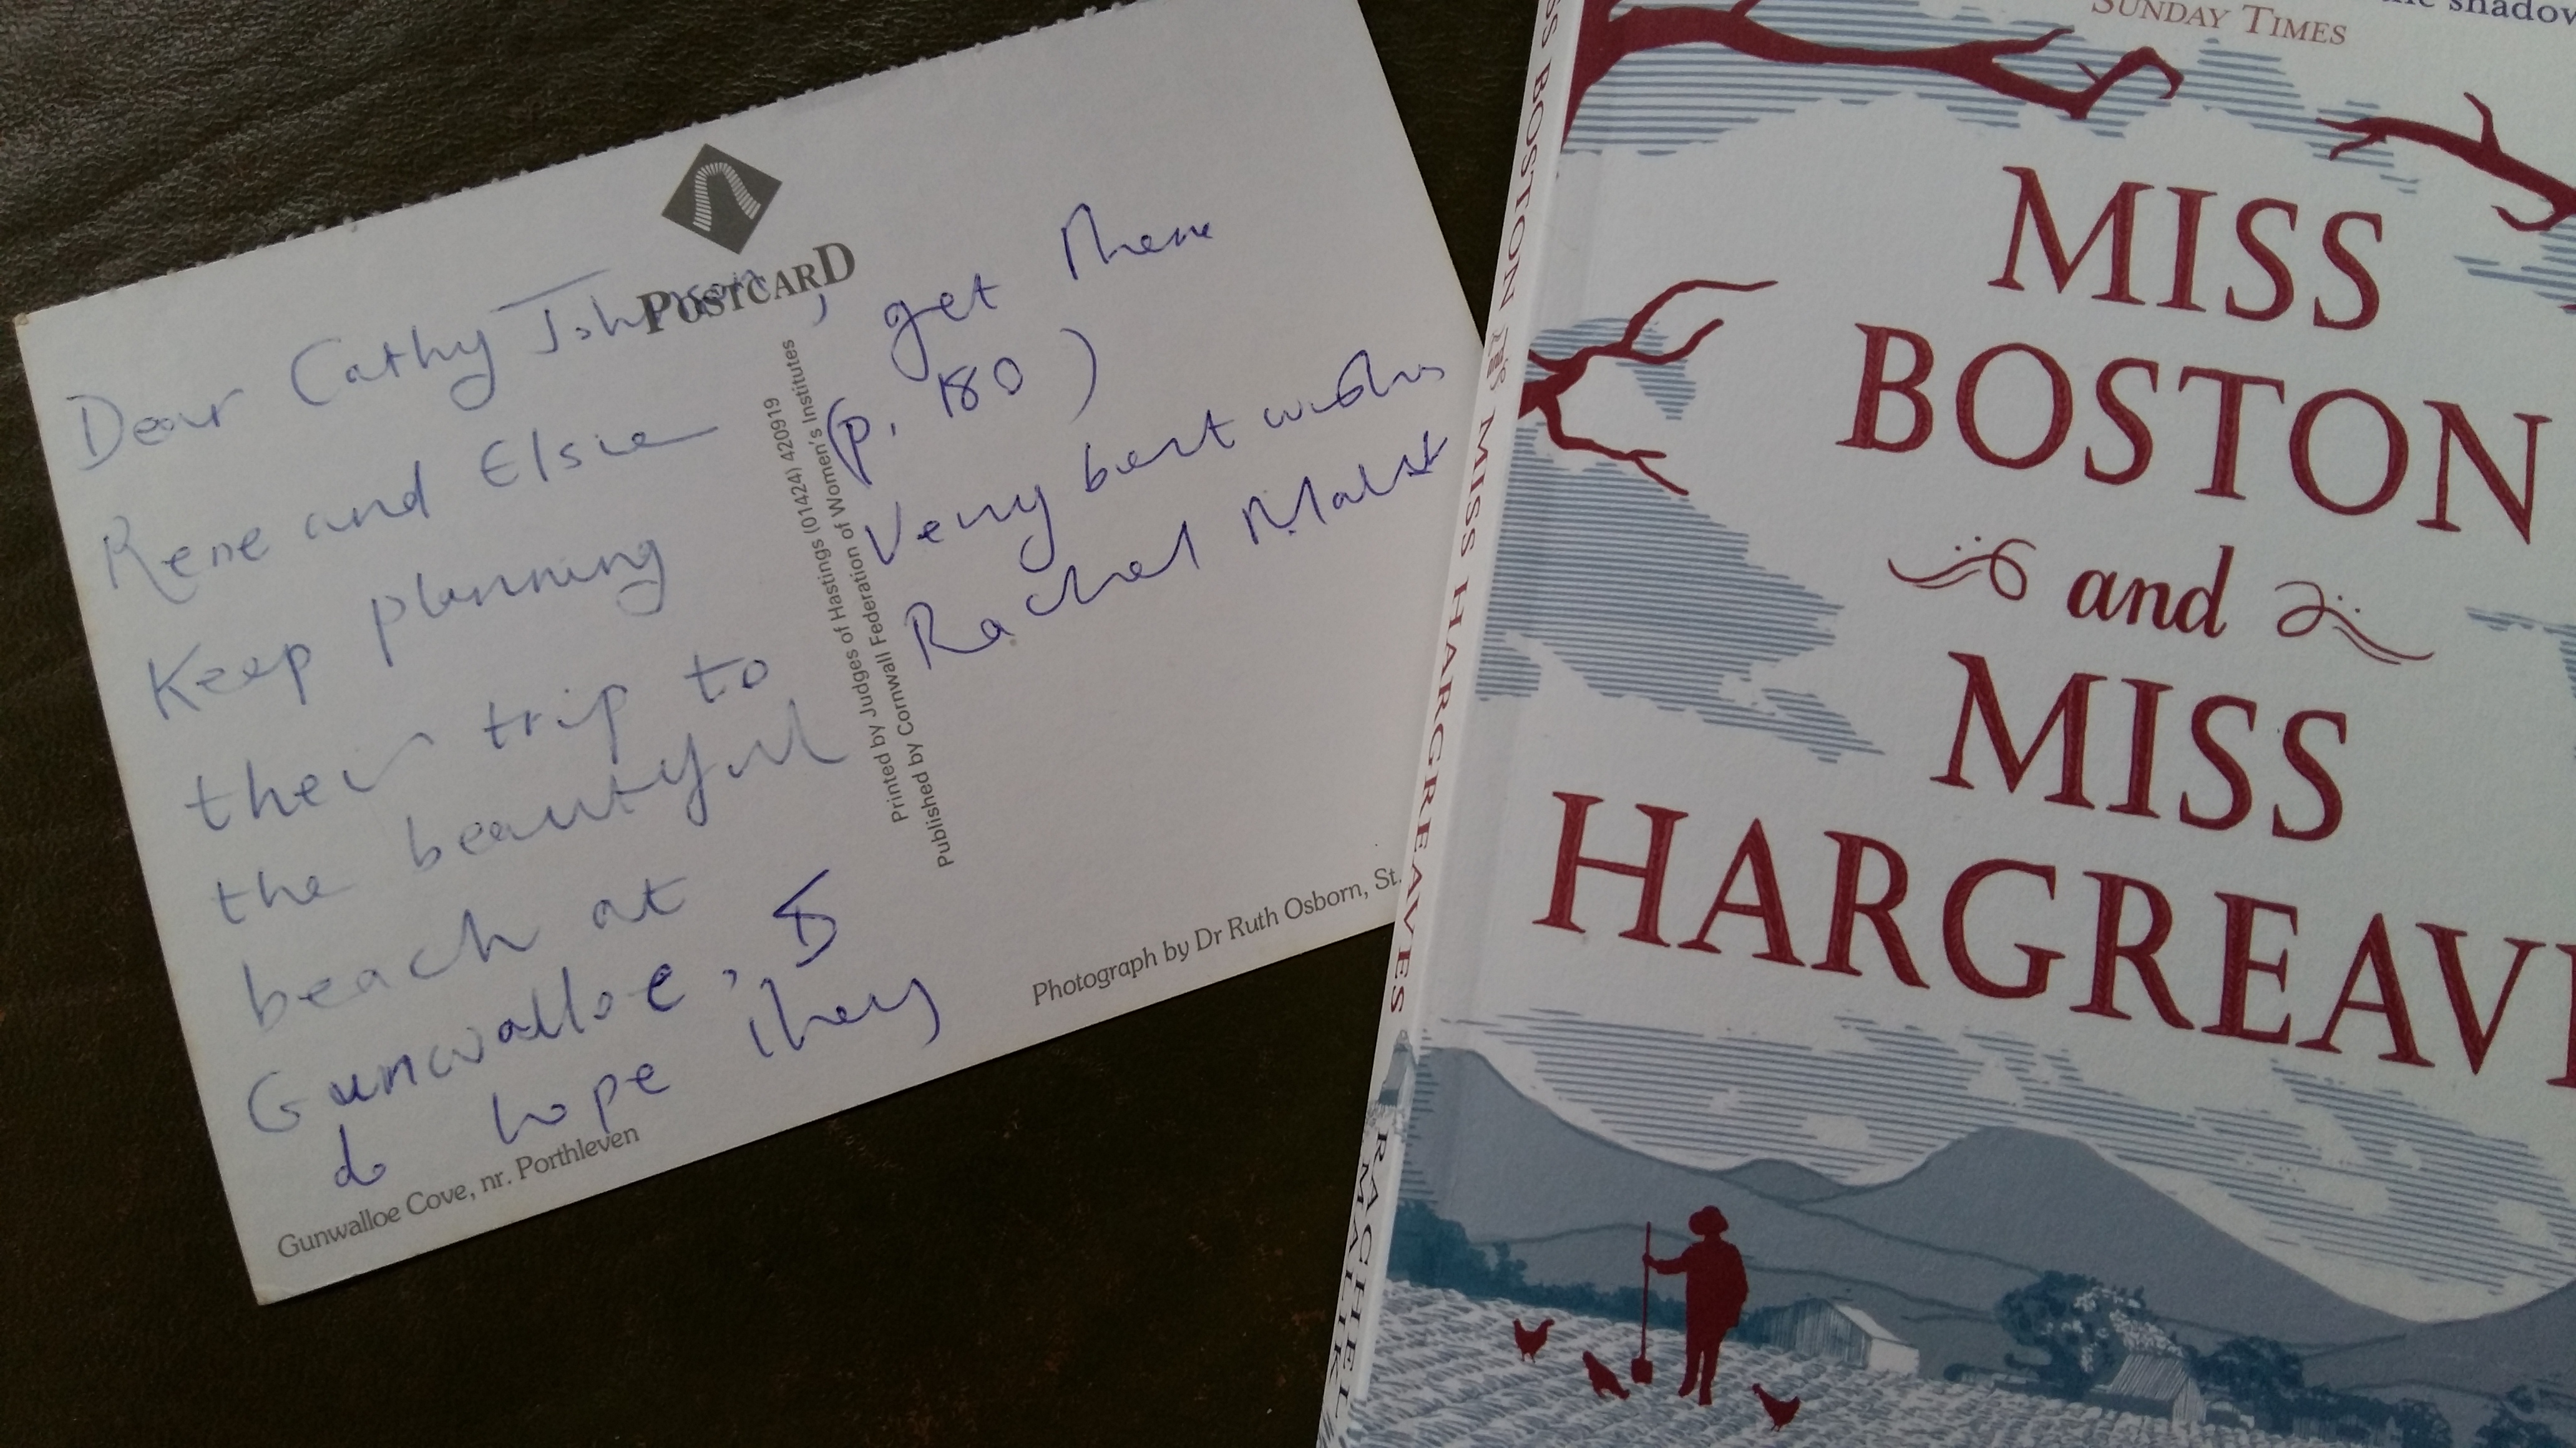 POSTCARD
Dear Cathy Johnson,
Rene and Elsie
Keep planning
their trip to
the beautiful
beach at
Gunwalloe, I
do hope they
get there
(p. 180)
Very best wishes
Rachel Malik
Printed by Judges of Hastings (01424) 420919
Published by Cornwall Federation of Women's Institutes
Gunwalloe Cove, nr. Porthleven
Photograph by Dr Ruth Osborn, St.
SS BOSTON AND MISS HARGREAVES
RACHEL
MALIK
shadow
SUNDAY TIMES
MISS
BOSTON
and
MISS
HARGREAVE